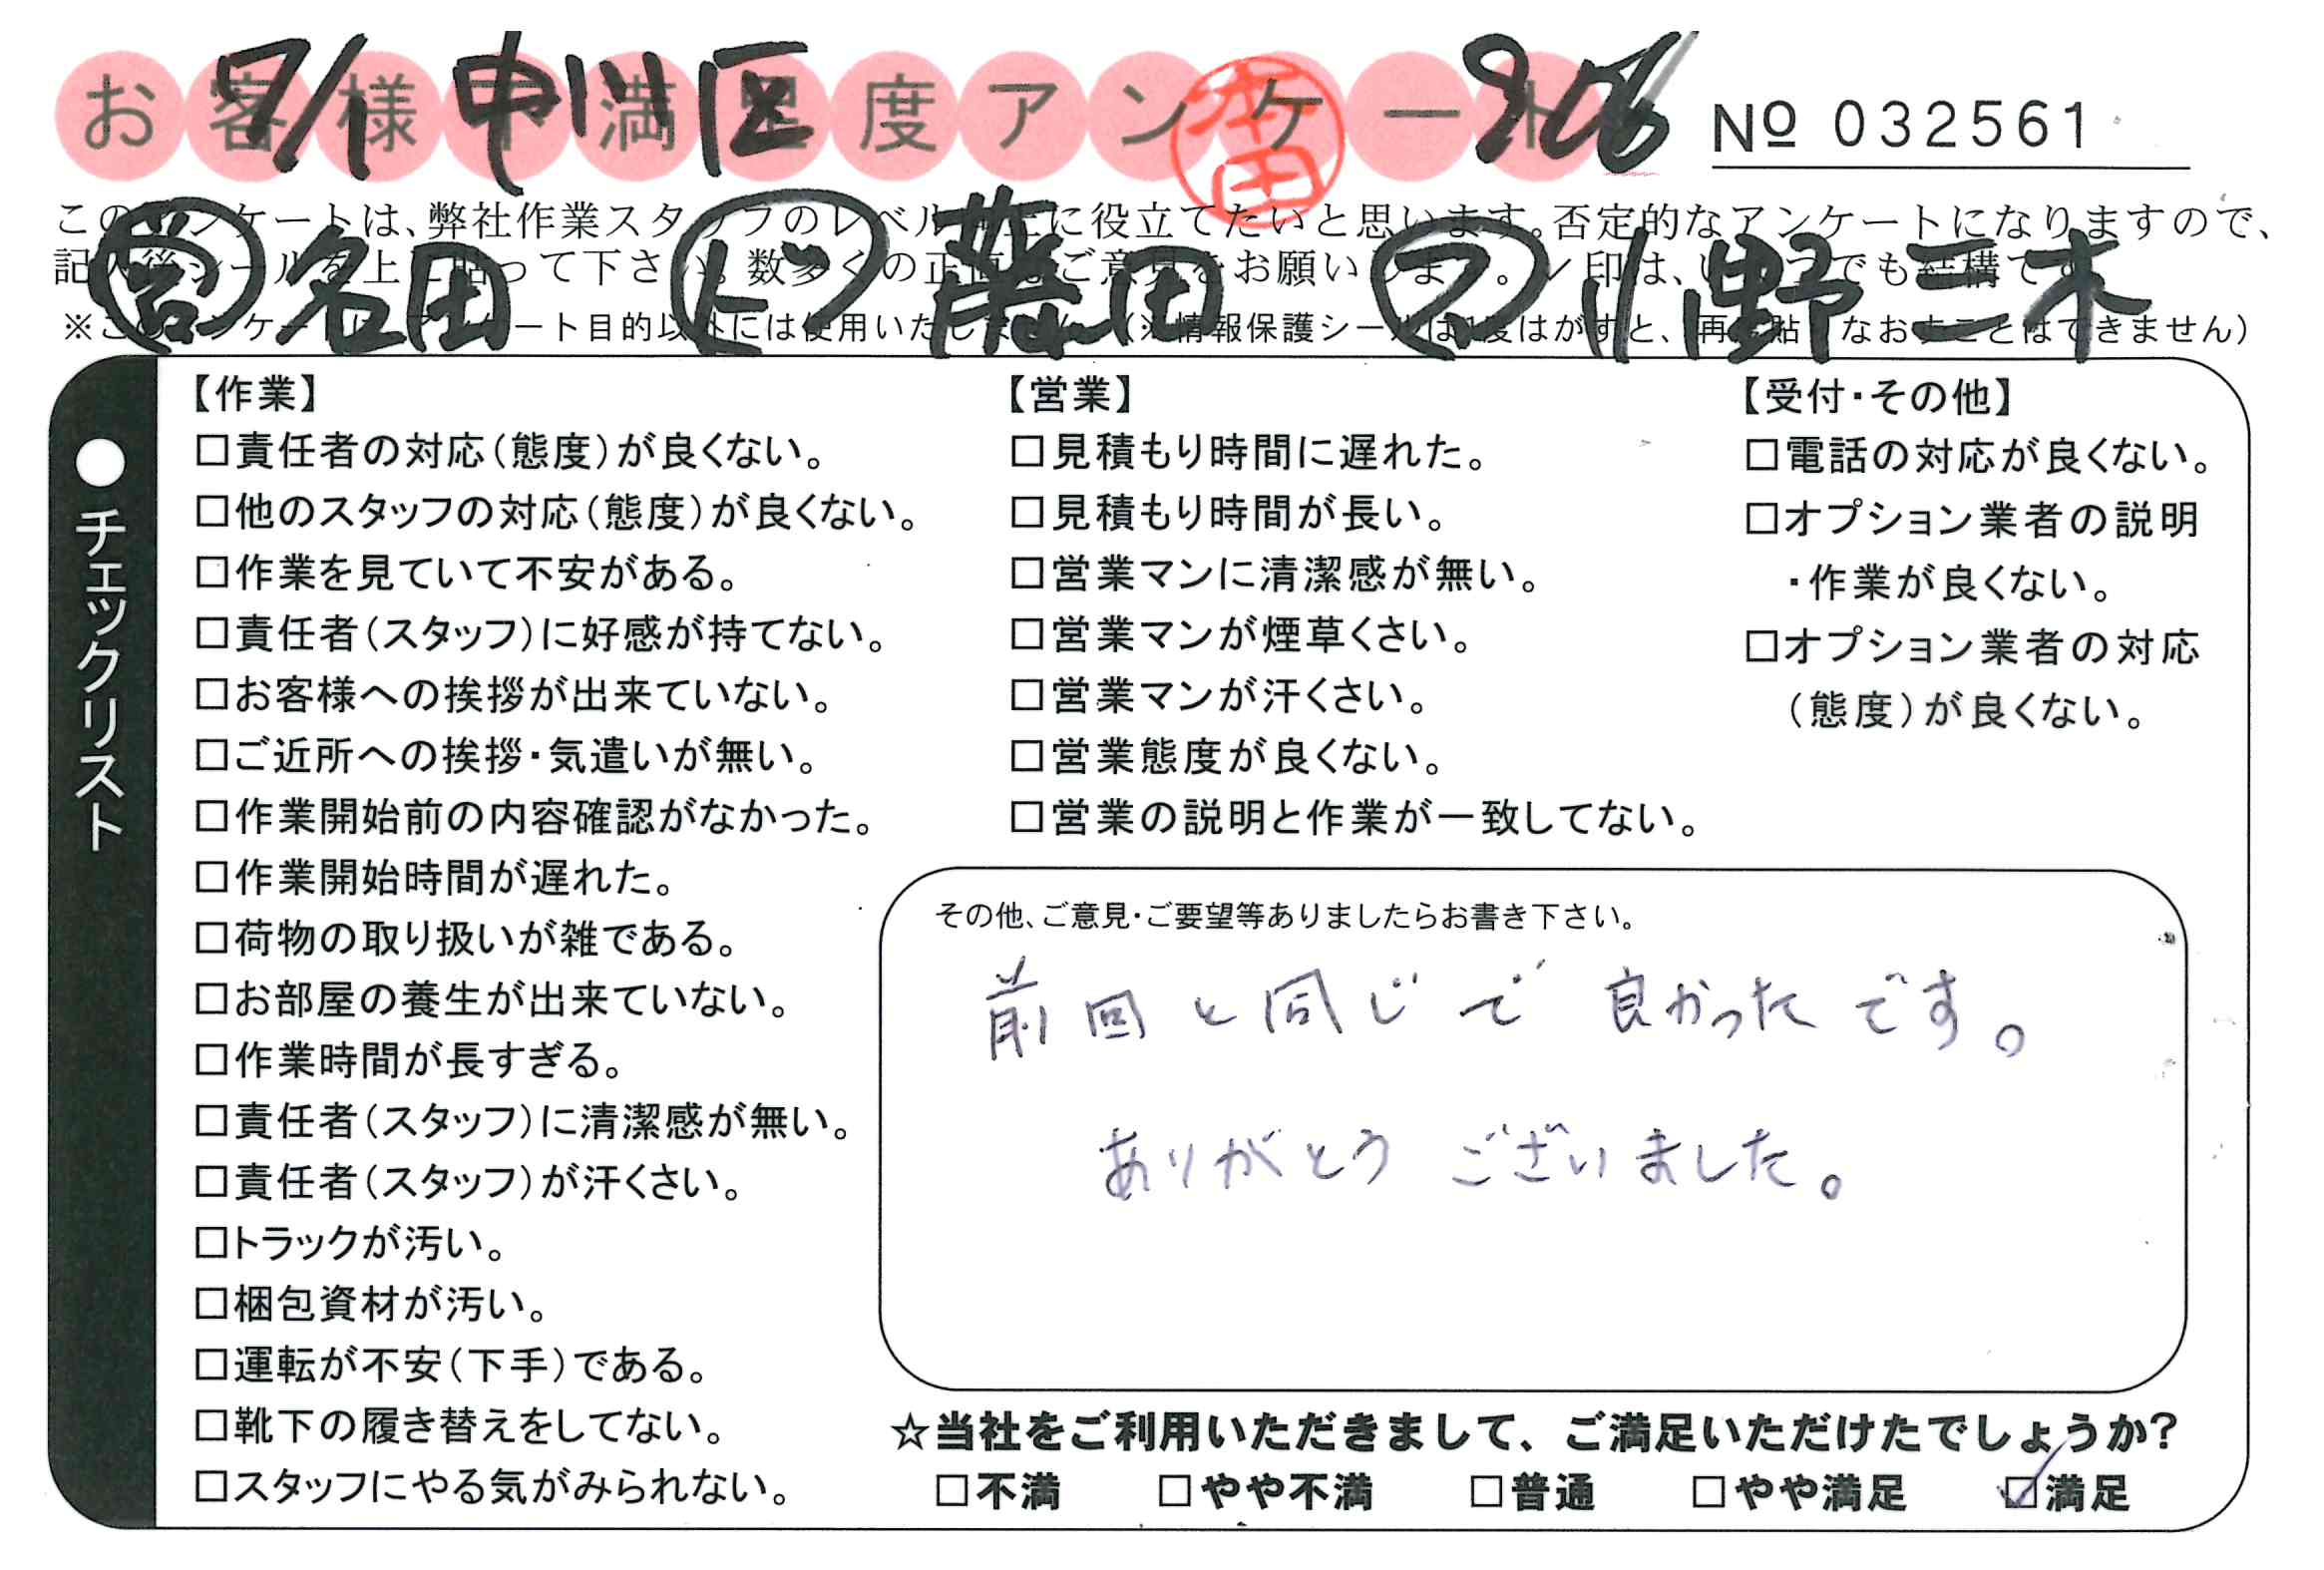 お客様不満足度アンケート № 032561
7/1 中川区 906
本田
このアンケートは、弊社作業スタッフのレベル向上に役立てたいと思います。否定的なアンケートになりますので、
記入後シールを上に貼って下さい。数多くの正直なご意見をお願いします。✓印は、いくつでも結構です。
※このアンケートは、アンケート目的以外には使用いたしません。(※情報保護シールは1度はがすと、再度貼りなおすことはできません)
営 名田 ド 藤田 マ 小野 三木
●チェックリスト
【作業】
□責任者の対応(態度)が良くない。
□他のスタッフの対応(態度)が良くない。
□作業を見ていて不安がある。
□責任者(スタッフ)に好感が持てない。
□お客様への挨拶が出来ていない。
□ご近所への挨拶・気遣いが無い。
□作業開始前の内容確認がなかった。
□作業開始時間が遅れた。
□荷物の取り扱いが雑である。
□お部屋の養生が出来ていない。
□作業時間が長すぎる。
□責任者(スタッフ)に清潔感が無い。
□責任者(スタッフ)が汗くさい。
□トラックが汚い。
□梱包資材が汚い。
□運転が不安(下手)である。
□靴下の履き替えをしてない。
□スタッフにやる気がみられない。
【営業】
□見積もり時間に遅れた。
□見積もり時間が長い。
□営業マンに清潔感が無い。
□営業マンが煙草くさい。
□営業マンが汗くさい。
□営業態度が良くない。
□営業の説明と作業が一致してない。
【受付・その他】
□電話の対応が良くない。
□オプション業者の説明
・作業が良くない。
□オプション業者の対応
(態度)が良くない。
その他、ご意見・ご要望等ありましたらお書き下さい。
前回と同じで 良かったです。
ありがとう ございました。
☆当社をご利用いただきまして、ご満足いただけたでしょうか?
□不満 □やや不満 □普通 □やや満足 ☑満足